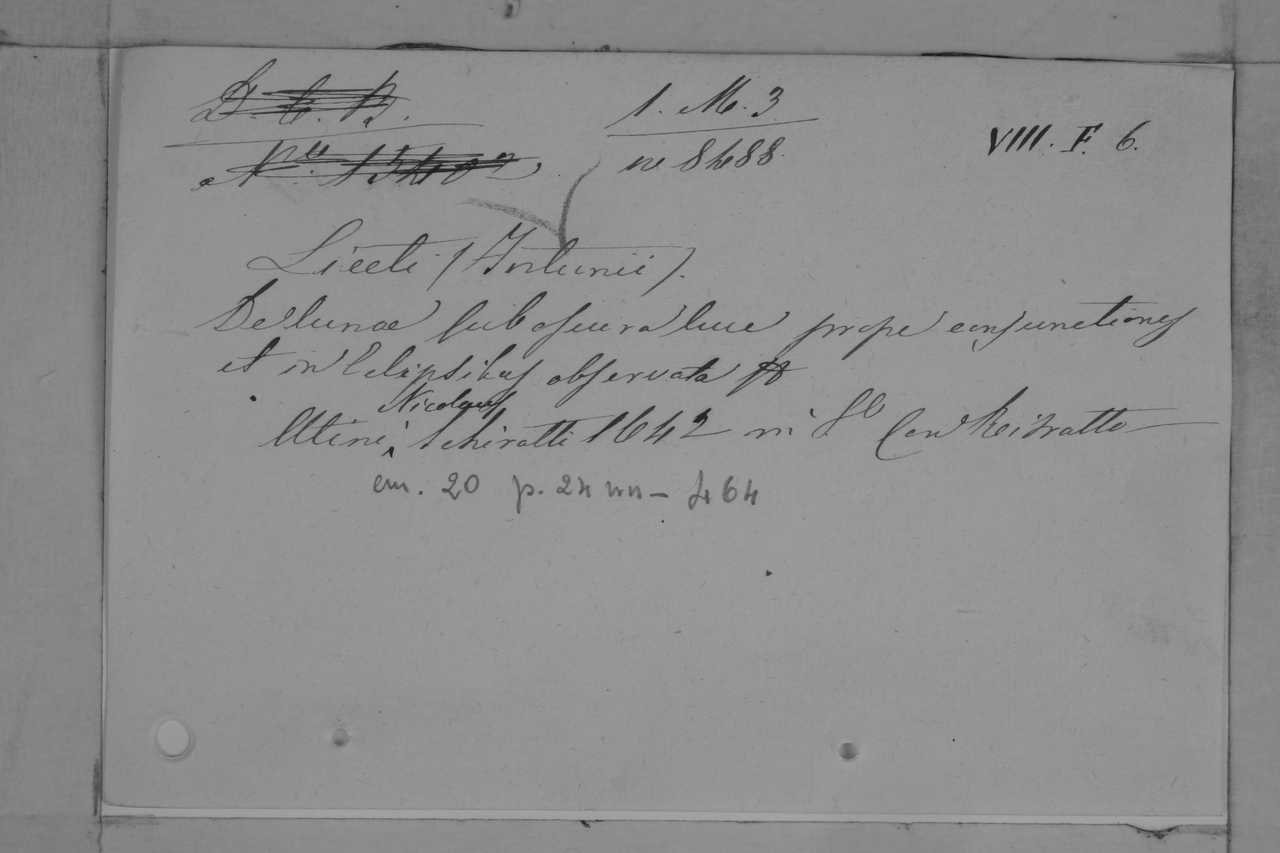 D. C. B. 1. M. 3 VIII. F. 6.
No. 15402 no 8488
Liceti (Fortunii).
De lunae subobscura luce prope conjunctiones
et in Eclipsibus observata
Nicolaus
Utini, Schiratti 1642 in 8o Con Ritratto
cm. 20 p. 2 4 nn - 464